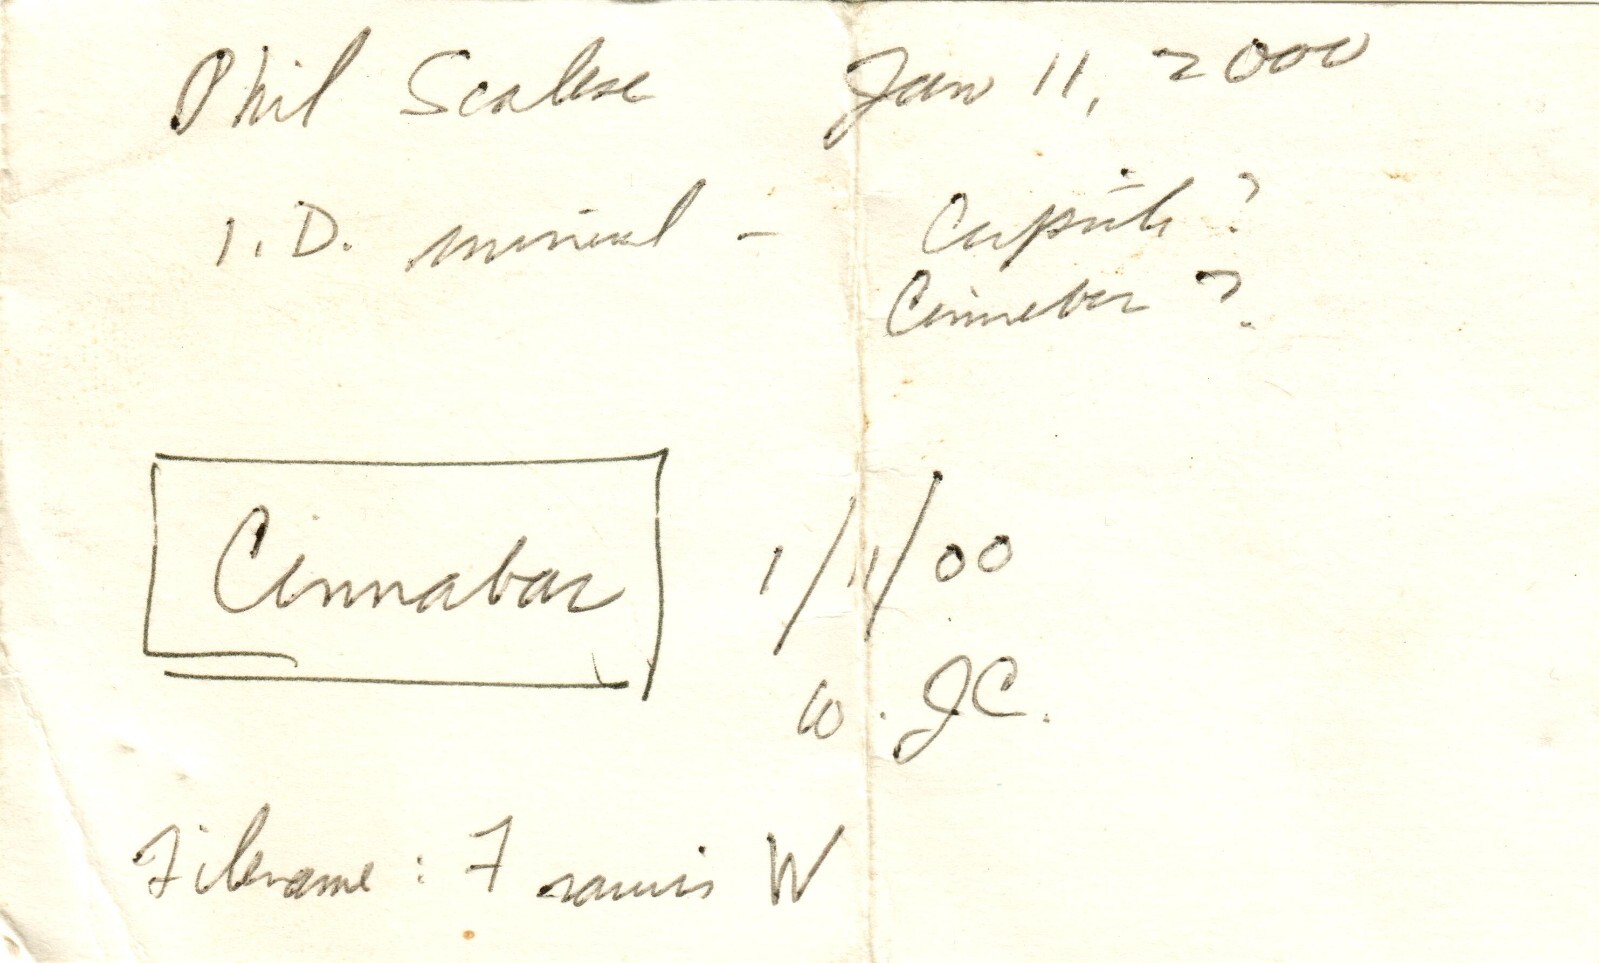 Phil Scalise Jan 11, 2000
I.D. mineral - Cuprite ?
Cinnebar ?
Cinnabar 1/11/00
W. JC.
Filename: Francis W